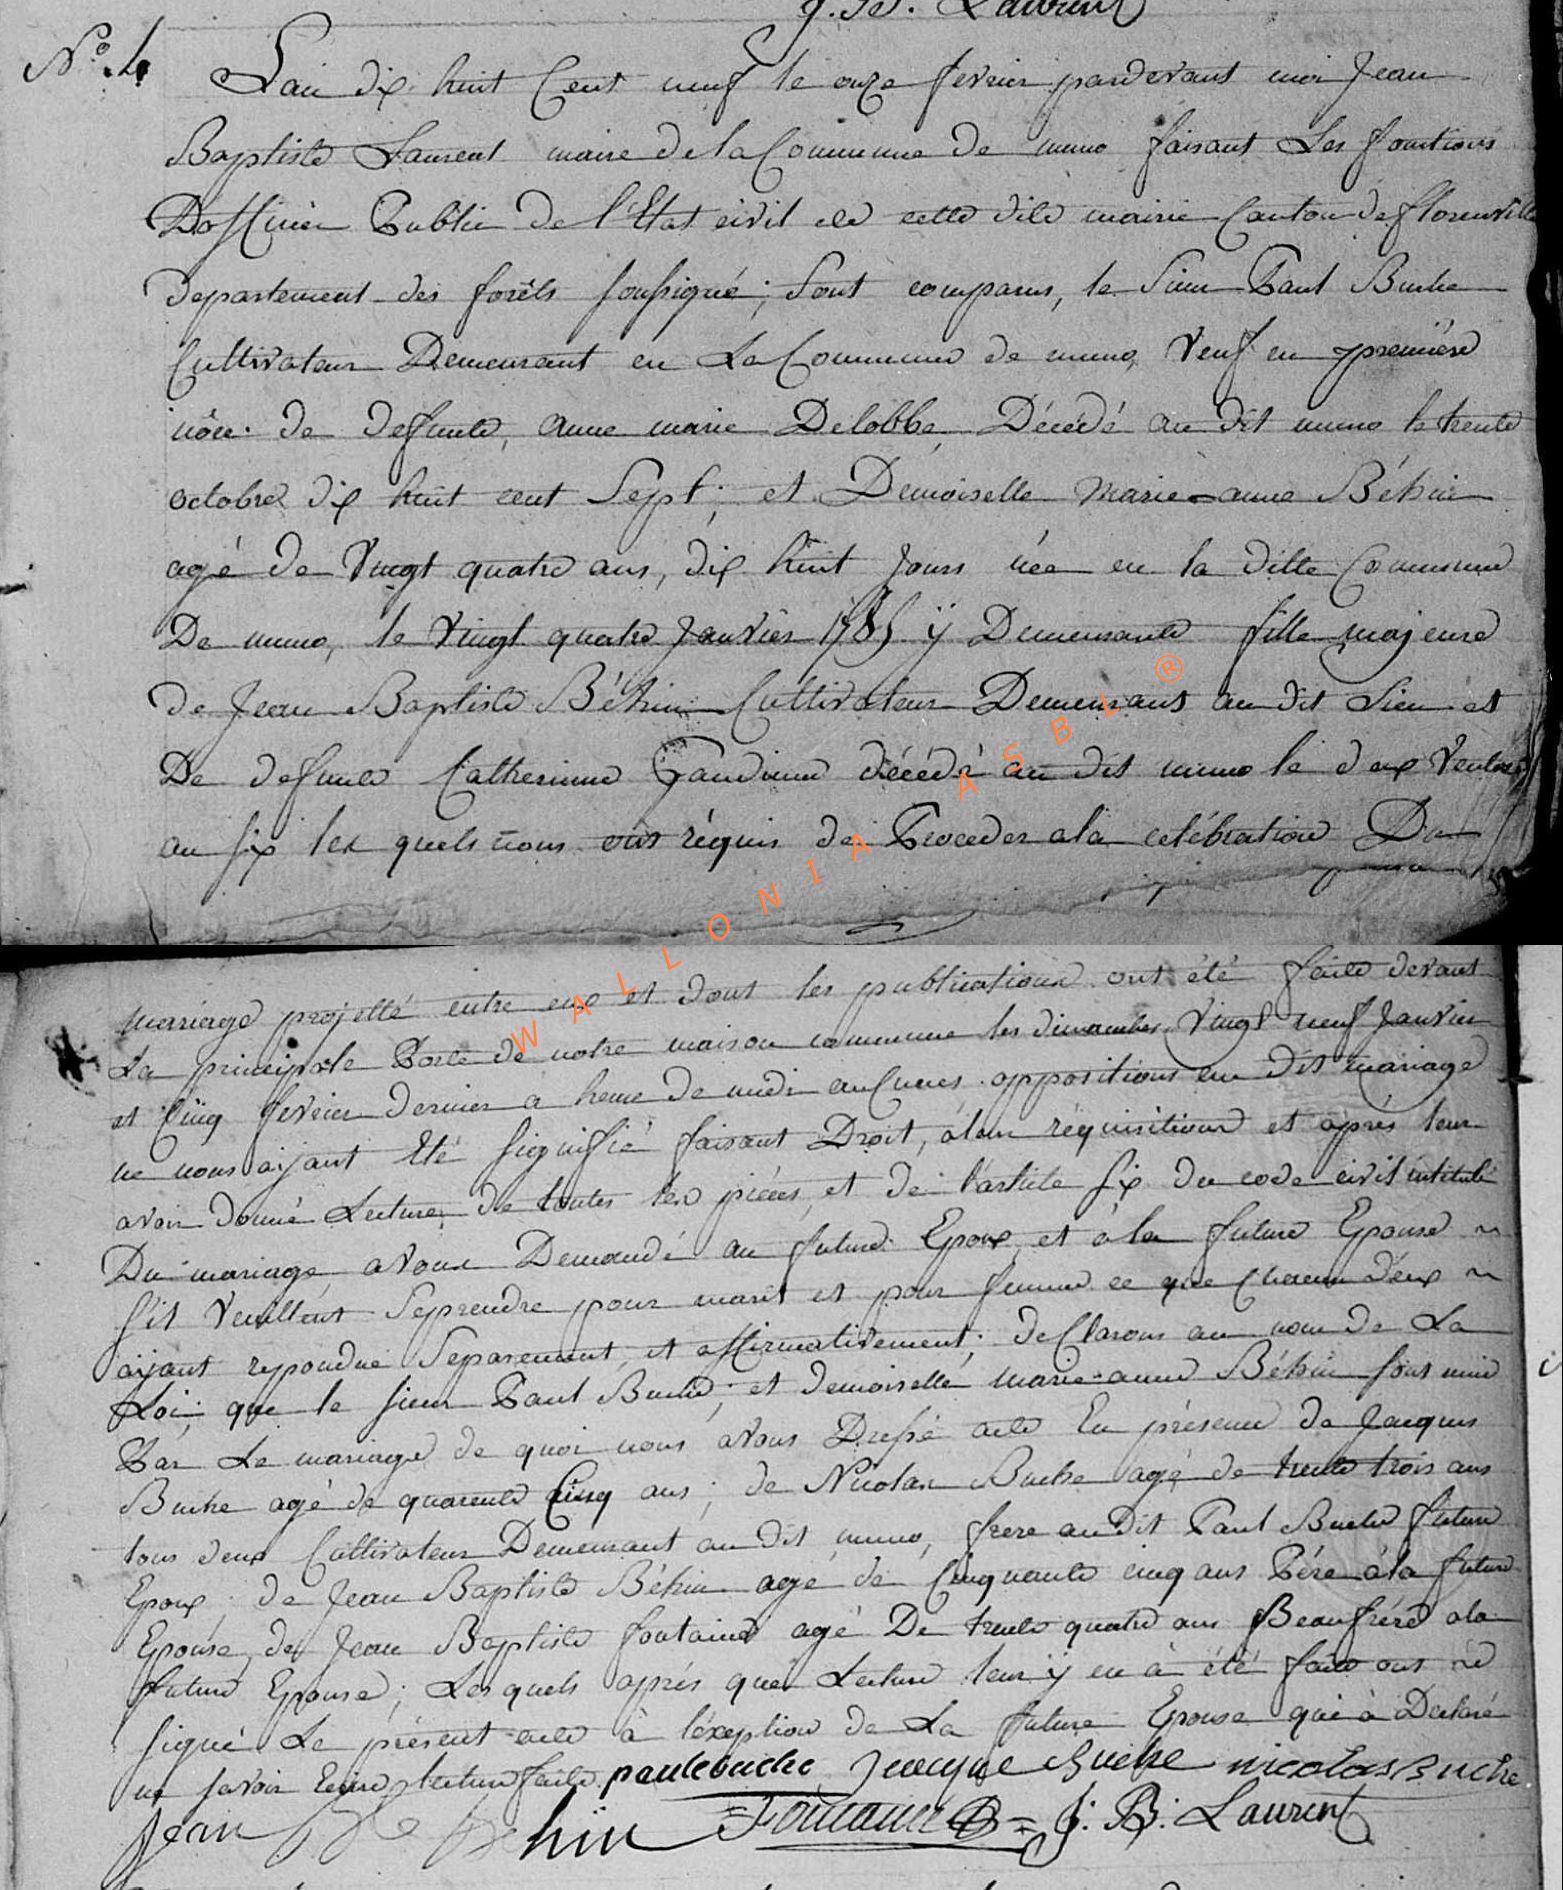 J. B. Laurent
N.° 4
L'an dix huit Cent neuf le onze fevrier pardevant moi Jean
Baptiste Laurent maire de la Commune de muno faisant Les fonctions
Dofficier Public de l'Etat civil de cette dite mairie Canton de florenville
departement des forêts soussigné; Sont comparus, le Sieur Paul Buche
Cultivateur Demeurant en La Commune de muno, Veuf en première
nôce. de defunte, anne marie Delobbe, Décédé au dit muno le trente
octobre dix huit cent Sept; et Démoiselle Marie-anne Béhin
agé de Vingt quatre ans, dix huit Jours née en la ditte Commune
De muno, le Vingt quatre Janvier 1785 ÿ Demeurante fille majeure
de Jean Baptiste Béhin Cultivateur Demeurant au dit Lieu et
De defunte Catherinne Gaudinne décédé au dit muno le deux Ventose
an six les quels nous ons réquis de Proceder ala celébration Du
mariage projetté entre eux et dont les publications ont été faite devant
La principale Porte de notre maison commune les dimanches Vingt neuf Janvier
et Cinq fevrier dernier a heure de midi aucunes oppositions au Dit mariage
ne nous aÿant Eté signifié faisant Droit, á leur réquisitions et aprés leur
avoir donné Lecture, de toutes les piéces, et de l'article six du code civil intitulé
Du mariage avons Demandé au future Epoux, et à la future Epouse ~
s'il Veullent Seprendre pour marit et pour femme ce que Chacun d'eux ~
aÿant repondue Separement, et affirmativement; deClarons au nom de La
Loi; que le sieur Paul Buche; et demoiselle marie-anne Béhin sont unie
Par Le mariage de quoi nous avons Dressé acte En présence de Jacques
Buche agé de quarente Cinq ans; de Nicolas Buche agé de trente trois ans
tous deux Cultivateur Demeurant au dit muno, frere au Dit Paul Buche future
Epoux; de Jean Baptiste Béhin agé de Cinquante cinq ans Pére á la future
Epouse, de Jean Baptiste fontaine agé De trente quatre ans Beaufrére ala
future Epouse; Les quels aprés que Lecture leur ÿ en à été faite ont
signé Le présent acte à léxeption de La future Epouse qui à Declaré
ne savoir Ecrire, lecture faite. paulebuche Jacque Buche nicolas Buche
Jean Bte Behin Fontaine J: B: Laurent
WALLONIA ASBL ®